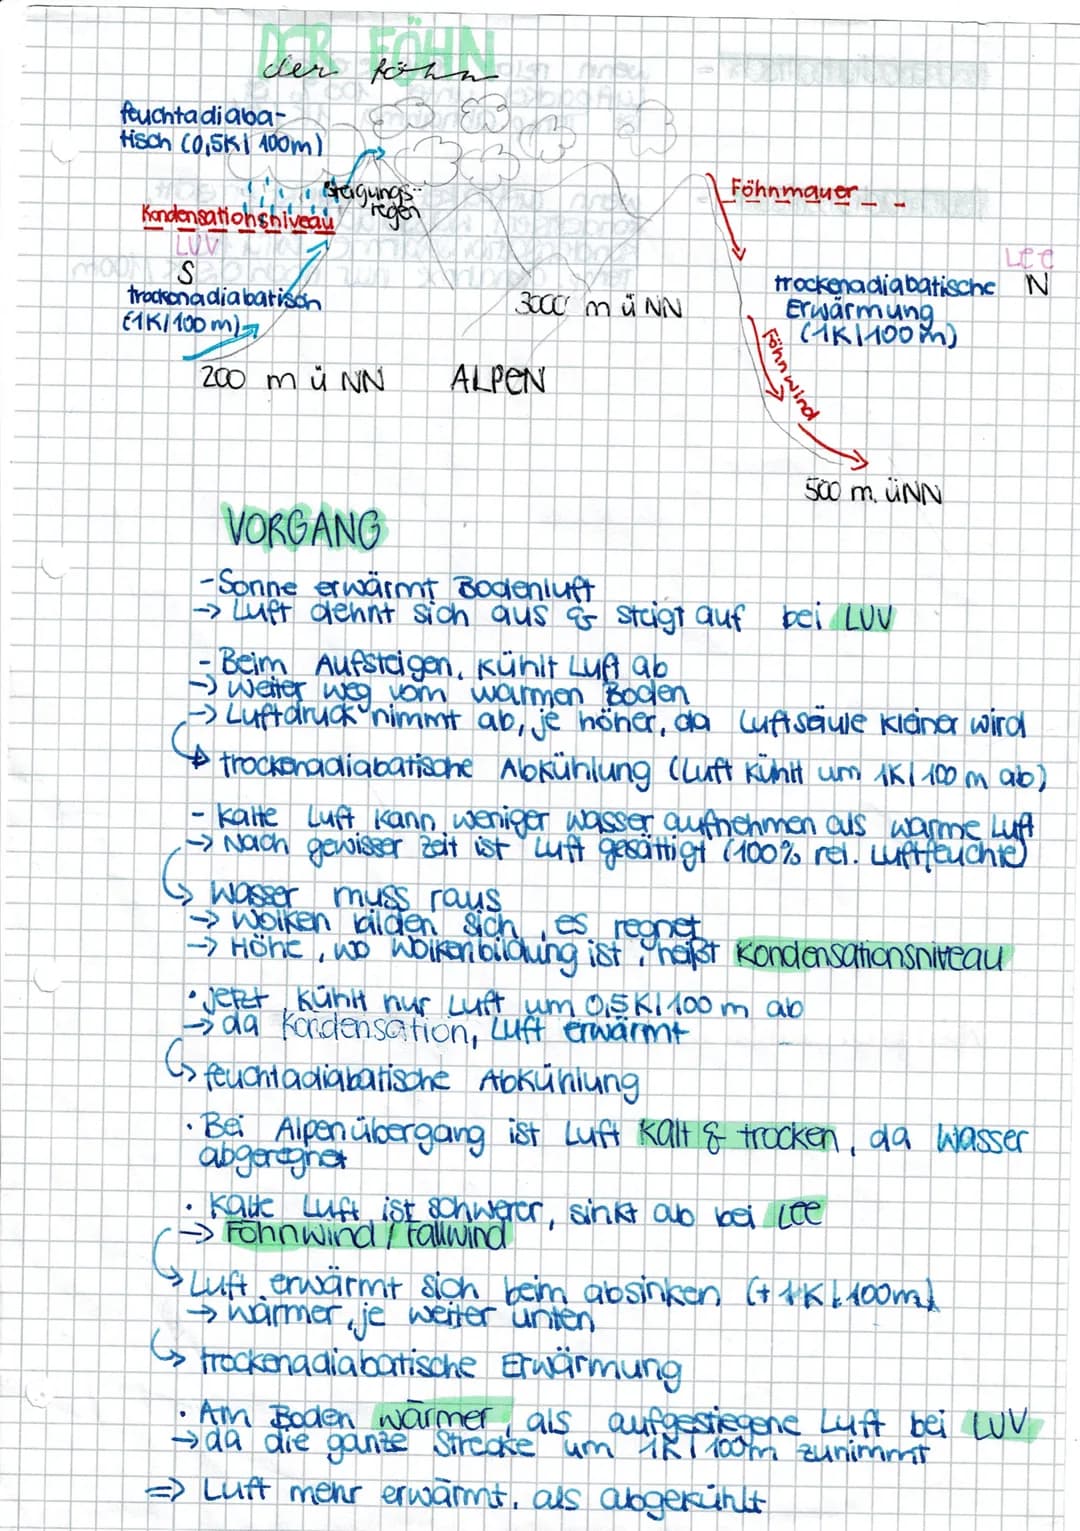 DER FÖHN
der föhn
feuchtadiaba-
tisch (0,5K/100m)
Steigungs-
regen
Kondensationsniveau
LUV
S
trockenadiabatisch
(1K/100m)
200 m ü NN
ALPEN
3000 m ü NN
Föhnmauer
Lee
N
trockenadiabatische
Erwärmung
(1K/100m)
Föhnwind
500 m. üNN
VORGANG
- Sonne erwärmt Bodenluft
→ Luft dehnt sich aus & steigt auf bei LUV
- Beim Aufsteigen, kühlt Luft ab
→ weiter weg vom warmen Boden
→ Luftdruck nimmt ab, je höher, da Luftsäule kleiner wird
↳ trockenadiabatische Abkühlung (Luft kühlt um 1K/100 m ab)
- kalte Luft kann weniger wasser aufnehmen als warme Luft
→ Nach gewisser Zeit ist Luft gesättigt (100% rel. Luftfeuchte)
↳ wasser muss raus
→ Wolken bilden sich, es regnet
→ Höhe, wo Wolkenbildung ist, heißt Kondensationsniveau
• jetzt kühlt nur Luft um 0,5K/100 m ab
→ da Kondensation, Luft erwärmt
↳ feuchtadiabatische Abkühlung
• Bei Alpenübergang ist Luft kalt & trocken, da Wasser
abgeregnet
• Kalte Luft ist schwerer, sinkt ab bei Lee
→ Föhnwind / Fallwind
↳ Luft erwärmt sich beim absinken (+ 1K/100m)
→ wärmer, je weiter unten
↳ trockenadiabatische Erwärmung
• Am Boden wärmer, als aufgestiegene Luft bei LUV
→ da die ganze Strecke um 1K/100m zunimmt
⇒ Luft mehr erwärmt, als abgekühlt